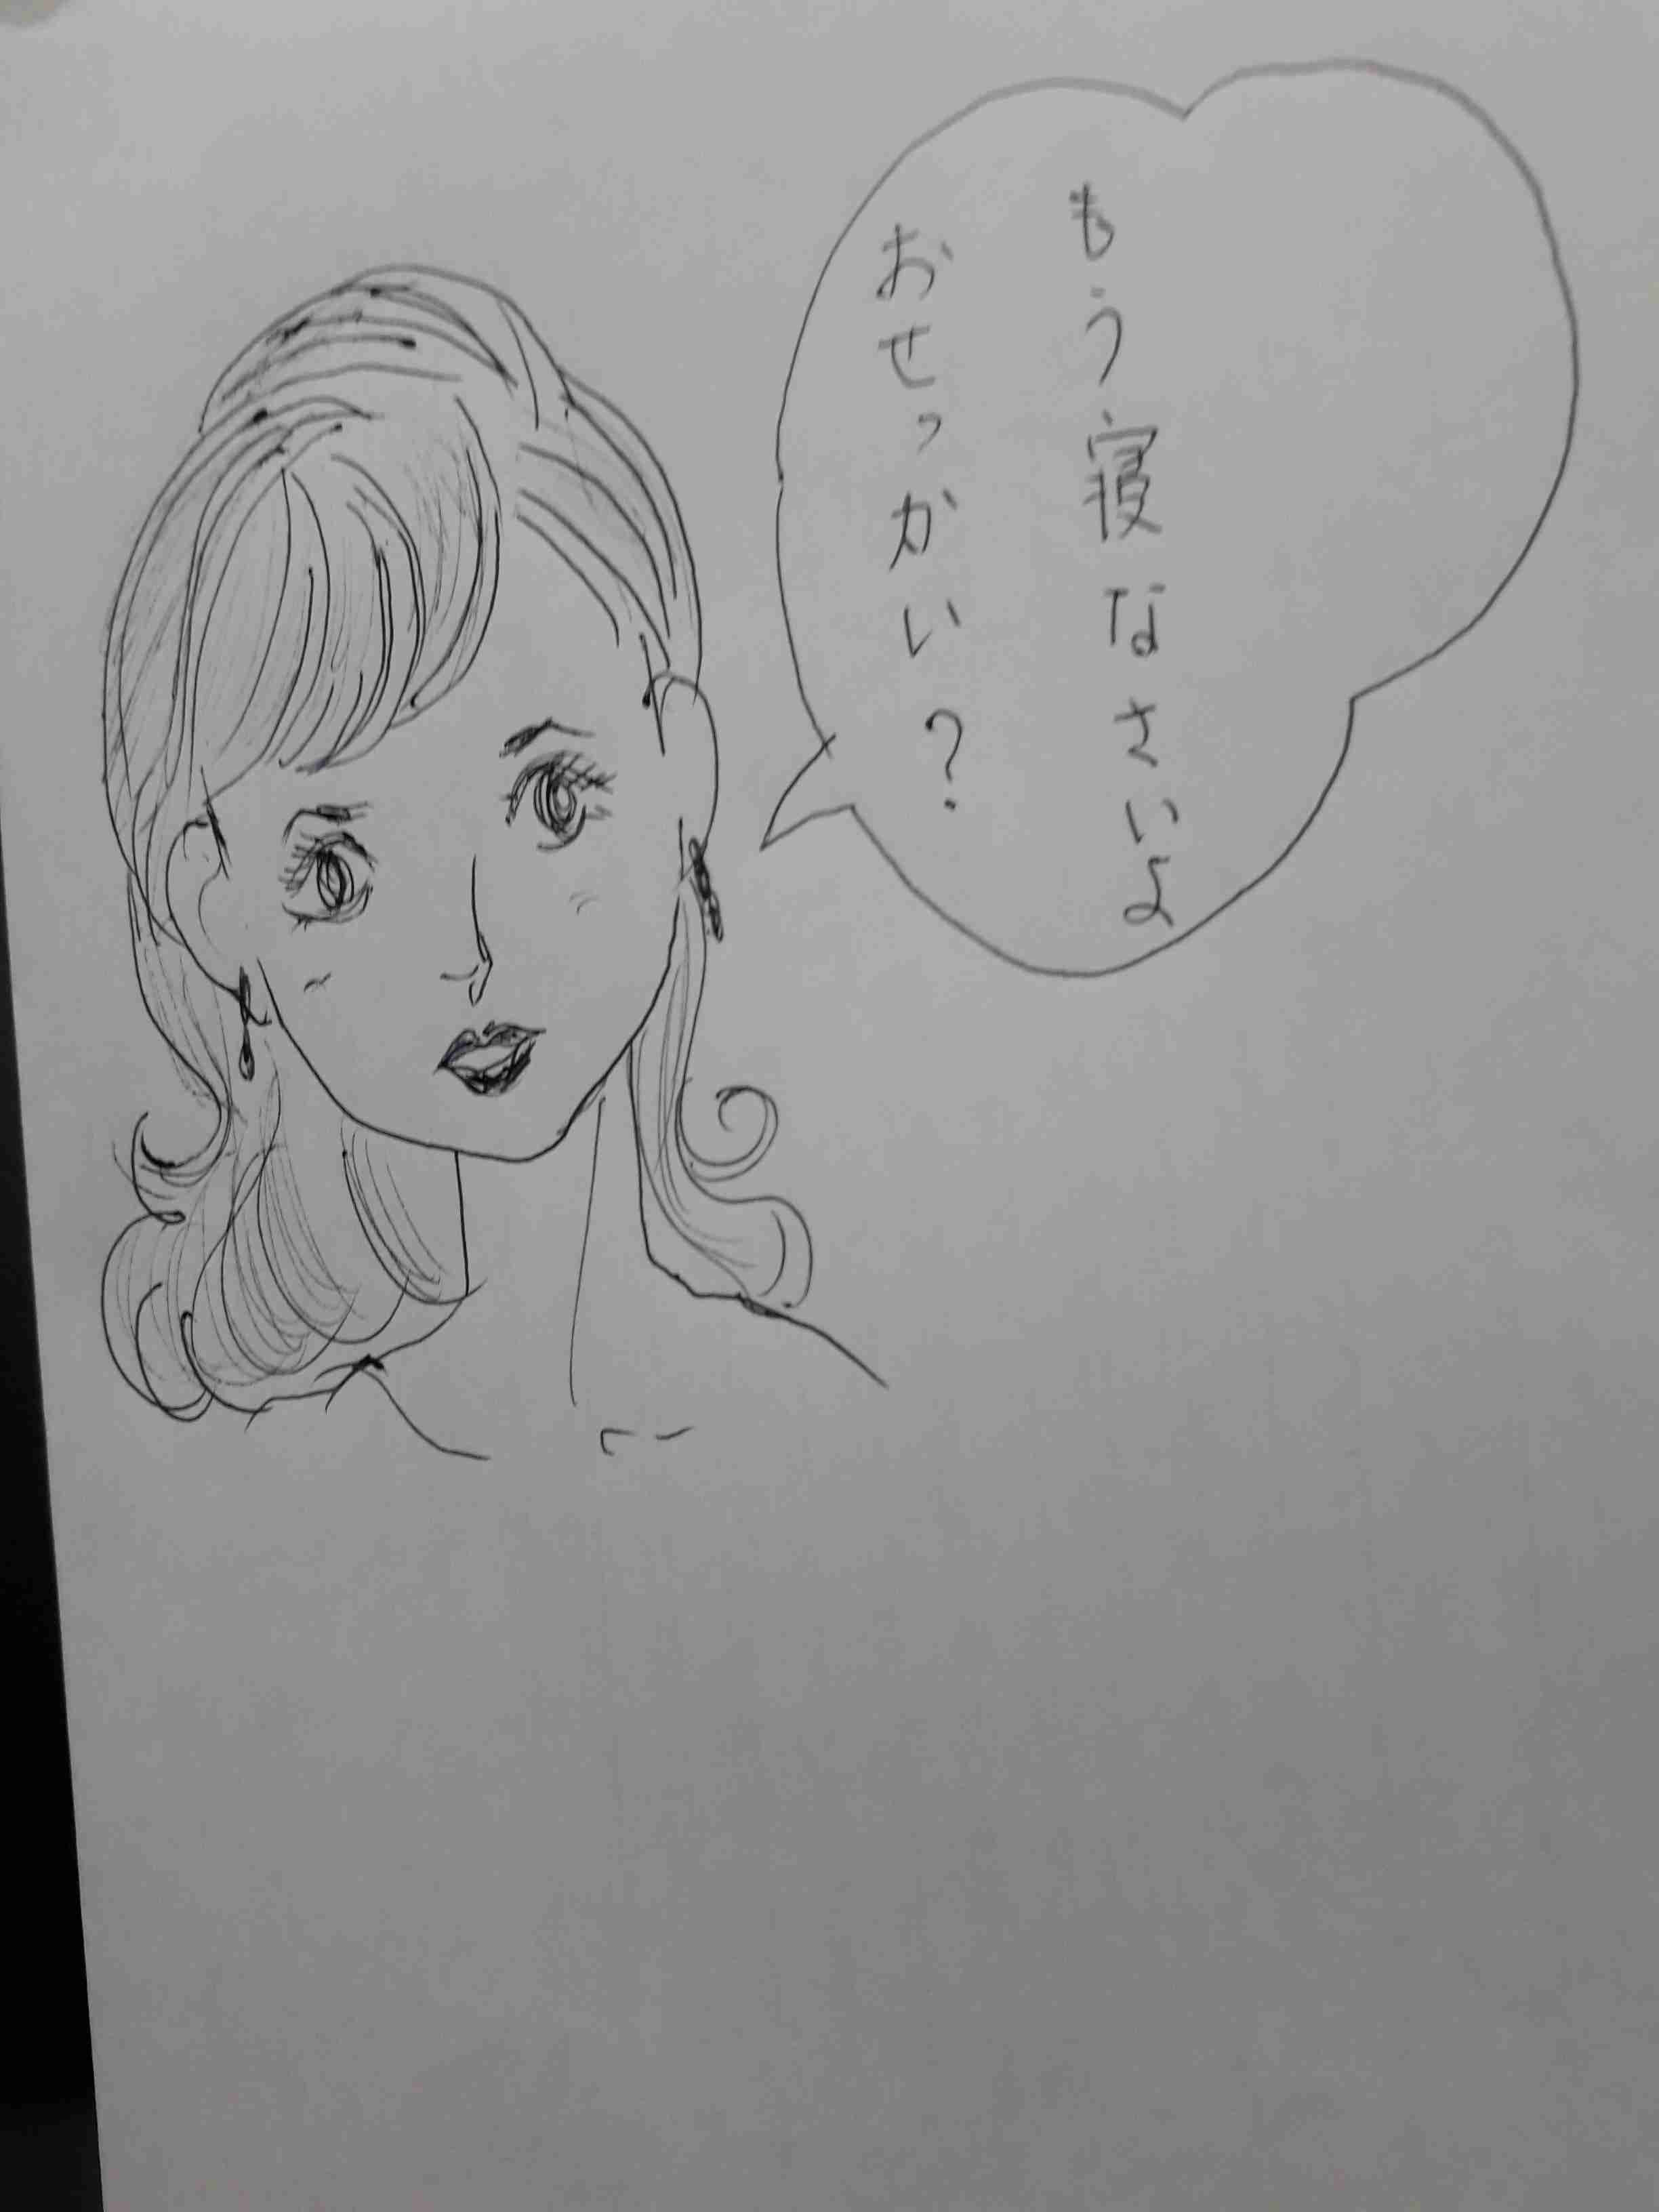 もう寝なさいよ
おせっかい？